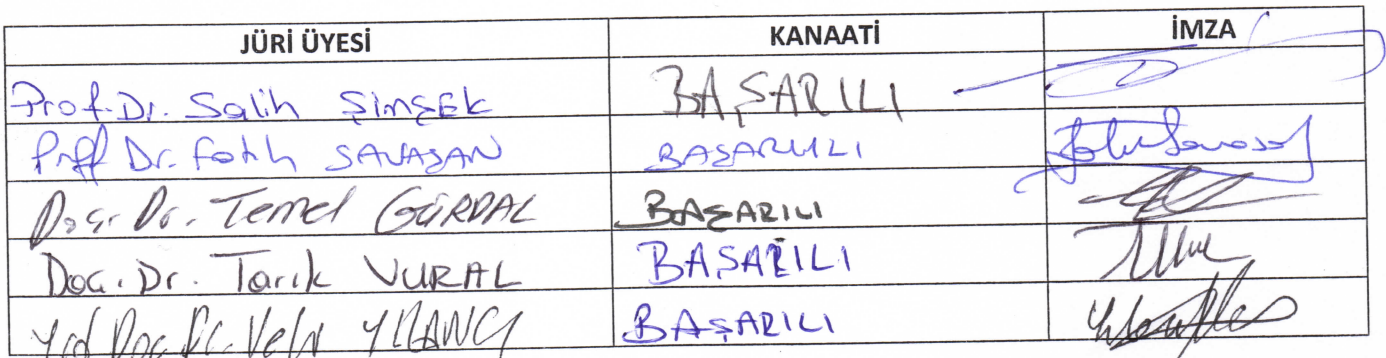 JÜRİ ÜYESİ KANAATİ İMZA
Prof. Dr. Salih ŞİMŞEK BAŞARILI
Prof Dr. Fatih SAVAŞAN BAŞARILI
Doç. Dr. Temel GÜRDAL BAŞARILI
Doç. Dr. Tarık VURAL BAŞARILI
Yrd Doç. Dr. Veli YILANCI BAŞARILI